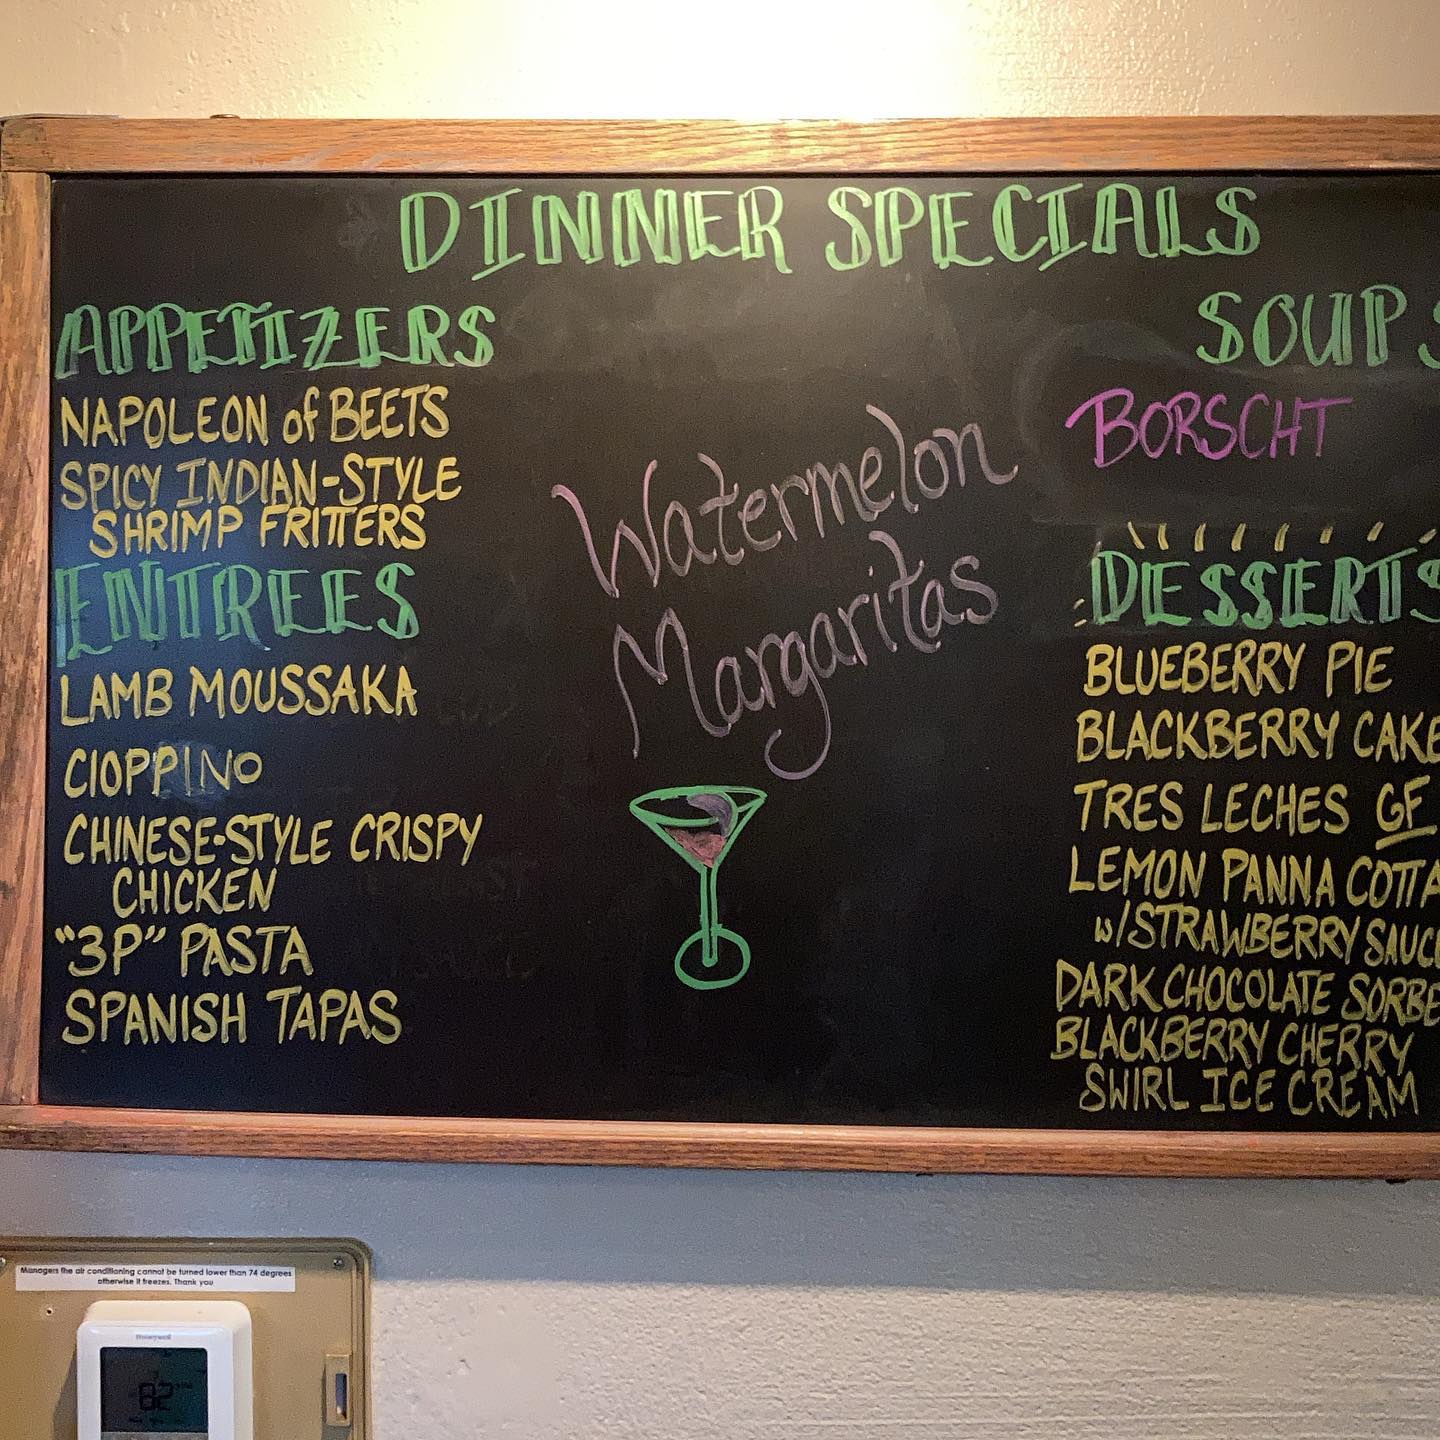 DINNER SPECIALS
APPETIZERS
NAPOLEON of BEETS
SPICY INDIAN-STYLE
SHRIMP FRITTERS
ENTREES
LAMB MOUSSAKA
CIOPPINO
CHINESE-STYLE CRISPY
CHICKEN
"3P" PASTA
SPANISH TAPAS
Watermelon
Margaritas
SOUPS
BORSCHT
DESSERTS
BLUEBERRY PIE
BLACKBERRY CAKE
TRES LECHES GF
LEMON PANNA COTTA
w/STRAWBERRY SAUC
DARK CHOCOLATE SORBE
BLACKBERRY CHERRY
SWIRL ICE CREAM
Managers the air conditioning cannot be turned lower than 74 degrees
otherwise it freezes. Thank you
Honeywell
82